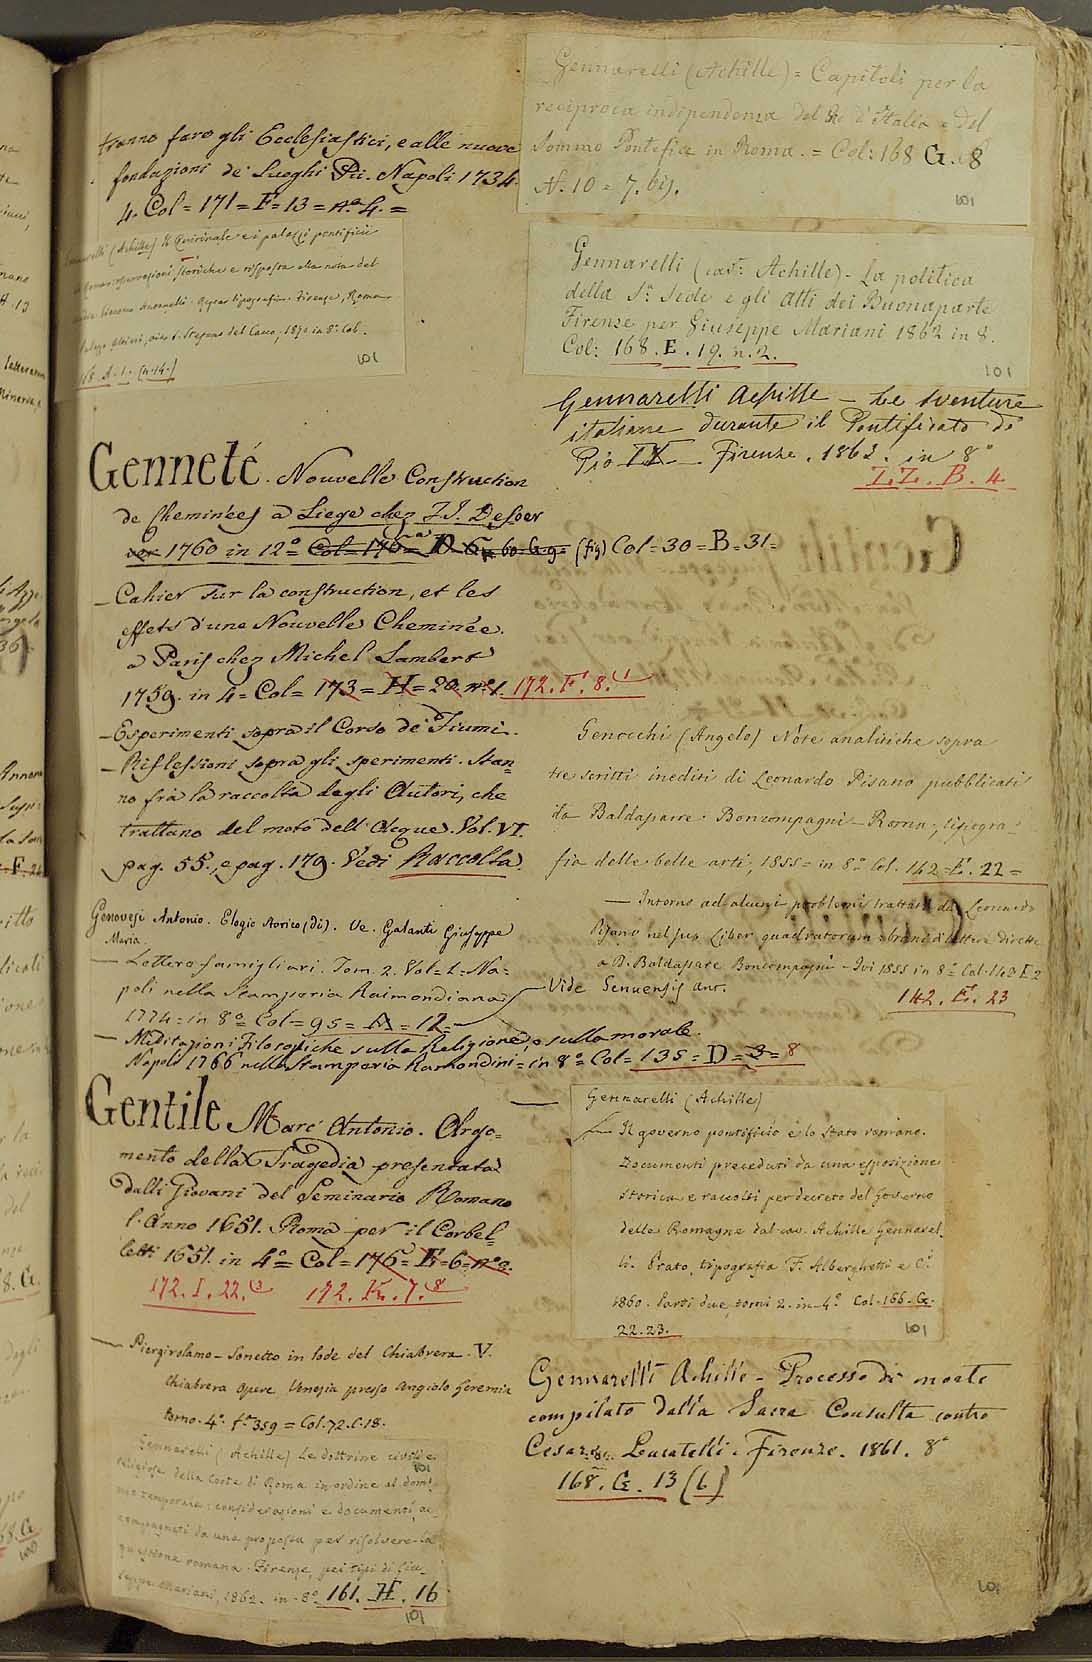 tranno faro gli Ecclesiastici, e alle nuove
fondazioni de' Luoghi Pii. Napoli 1734.
4. Col = 171 = F = 13 = nº 4. =
(Achille) Il Quirinale e i palazzi pontificii
osservazioni storiche e risposta alla nota del
Firenze, Roma
S. Stefano del Cacco, 1870 in 8º Col.
168. A. 1. (n. 14.)
101
Genneté. Nouvelle Construction
de Cheminées a Liege chez J.J. Desoer
1760 in 12º Col = 176 = D. 60. G. 9 = (fig) Col = 30 = B = 31 =
— Cahier sur la construction, et les
effets d'une Nouvelle Cheminée.
a Paris chez Michel Lambert
1759. in 4 = Col = 173 = H = 20. nº 1. 172. F. 8. (1
— Esperimenti sopra il Corso de' Fiumi.
— Riflessioni sopra gli sperimenti. Stan=
no frà la raccolta degli Autori, che
trattano del moto dell'Acque. Vol. VI.
pag. 55., e pag. 179. Vedi Raccolta.
Genovesi Antonio. Elogio storico (di). Ve. Galanti Giuseppe
Maria
— Lettere famigliari. Tom. 2. Vol = 1 = Na=
poli nella Stamperia Raimondiana
1774 = in 8º Col = 95 = A = 12 =
— Meditazioni Filosofiche sulla Religione, e sulla morale.
Napoli 1766 nella Stamperia Raimondini = in 8º Col = 135 = D = 3 = 8
Gentile Marc' Antonio. Argo=
mento della Tragedia presentata
dalli Giovani del Seminario Romano
l'Anno 1651. Roma per il Corbel=
letti 1651. in 4º = Col = 176 = E = 6 = nº 2.
172. I. 22. (3 172. K. 7. (8
— Piergirolamo – Sonetto in lode del Chiabrera. V.
Chiabrera Opere Venezia presso Angiolo Geremia
tomo. 4º. fº 359 = Col. 72. C. 18.
Gennarelli (Achille) Le dottrine civili e
religiose della Corte di Roma in ordine al domi=
nio temporale: considerazioni e documenti ac=
compagnati da una proposta per risolvere la
questione romana. Firenze, pei tipi di Giu=
seppe Mariani, 1862. in. 8º 161. H. 16
101
101
Gennarelli (Achille) = Capitoli per la
reciproca indipendenza del Re d'Italia e del
Sommo Pontefice in Roma. = Col: 168 G. 8
N. 10 = 7. bis.
101
Gennarelli (cav: Achille) – La politica
della S.ª Sede e gli atti dei Buonaparte
Firenze per Giuseppe Mariani 1862 in 8.
Col: 168. E. 19. n. 2.
101
Gennarelli Achille – Le sventure
italiane durante il Pontificato di
Pio IX – Firenze. 1862. in 8º
Z. Z. B. 4
Genocchi (Angelo) Note analitiche sopra
tre scritti inediti di Leonardo Pisano pubblicati
da Baldassarre Boncompagni – Roma, tipogra=
fia delle belle arti, 1855 = in 8º Col. 142 = E. 22 =
— Intorno ad alcuni problemi trattati da Leonardo
Pisano nel suo Liber quadratorum brani di lettere dirette
a D. Baldassare Boncompagni – Ivi 1855 in 8º Col. 142 E. 2
142. E. 23
Vide Genuensis Ant.
Gennarelli (Achille)
— Il governo pontificio e lo Stato romano.
Documenti preceduti da una esposizione
storica e raccolti per decreto del Governo
delle Romagne dal cav. Achille Gennarel=
li. Prato, tipografia F. Alberghetti e C.
1860. Parti due, tomi 2. in 4º Col. 166. G.
22. 23.
101
Gennarelli Achille – Processo di morte
compilato dalla Sacra Consulta contro
Cesare Lucatelli. Firenze. 1861. 8º
168. G. 13 (6)
101